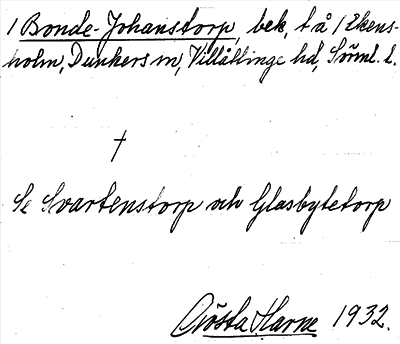 1 Bonde-Johanstorp, bek, t å 1 Ekens-
holm, Dunkers sn, Villåttinge hd, Sörml. l.
†
Se Svartenstorp och Glasbytetorp
Gösta Harne 1932.